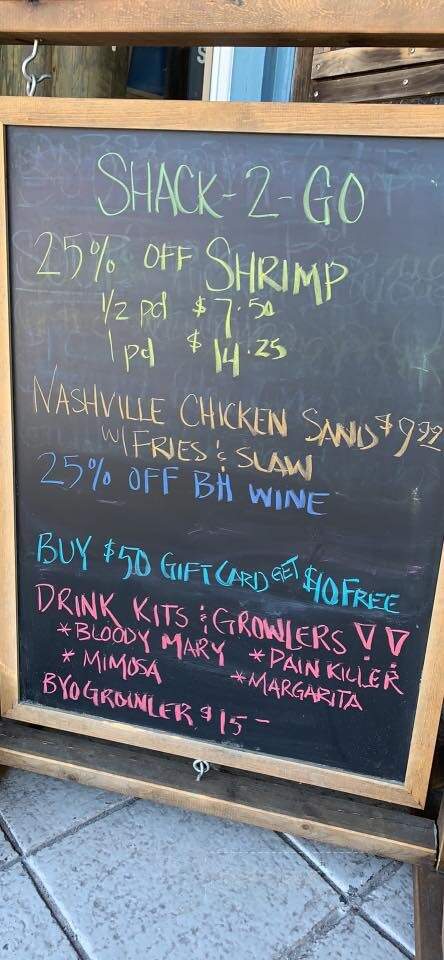 SHACK-2-GO
25% OFF SHRIMP
1/2 pd $7.50
1 pd $14.25
NASHVILLE CHICKEN SAND $9.99
W/ FRIES & SLAW
25% OFF BH WINE
BUY $50 GIFT CARD GET $10 FREE
DRINK KITS & GROWLERS
*BLOODY MARY *PAIN KILLER
* MIMOSA *MARGARITA
BYO GROWLER $15-